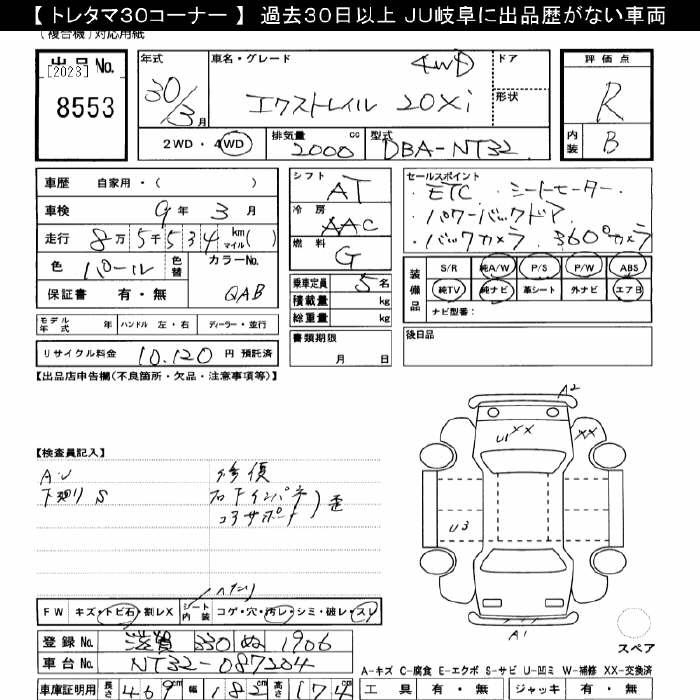 【 トレタマ30コーナー 】 過去30日以上 JU岐阜に出品歴がない車両
(複合機)対応用紙
出品No.
[2023]
8553
年式
30/3月
車名・グレード
4WD
エクストレイル 20Xi
ドア
形状
評価点
R
内装
B
2WD ・ 4WD
排気量
cc
2000
型式
DBA-NT32
車歴 自家用・( )
車検 9年 3月
走行 8万5千534 km マイル( )
色 パール
色替
カラーNo.
QAB
保証書 有・無
モデル年式 年 ハンドル 左・右 ディーラー・並行
リサイクル料金 10,120 円 預託済
シフト
AT
冷房
AAC
燃料
G
乗車定員 5名
積載量 kg
総重量 kg
書類期限
月 日
セールスポイント
・ETC ・シートヒーター・
・パワーバックドア
・バックカメラ ・360°カメラ
装備品
S/R 純A/W P/S P/W ABS
純TV 純ナビ 革シート 外ナビ エアB
ナビ型番:
後日品
【出品店申告欄(不良箇所・欠品・注意事項等)】
【検査員記入】
A・U
下廻り S
修復
右下インパネ
コアサポート
歪
A2
U1 XX
XX
U3
A1
スペア
FW キズ・トビ石・割レX
シート内装 コゲ・穴・汚レ・シミ・破レ・スレ
登録No. 滋賀 330 ぬ 1906
車台No. NT32-087204
車庫証明用 長さ 469cm 幅 182cm 高さ 174cm
A-キズ C-腐食 E-エクボ S-サビ U-凹ミ W-補修 XX-交換済
工具 有・無 ジャッキ 有・無